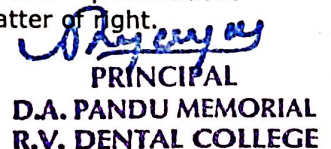 atter of right.
PRINCIPAL
D.A. PANDU MEMORIAL
R.V. DENTAL COLLEGE